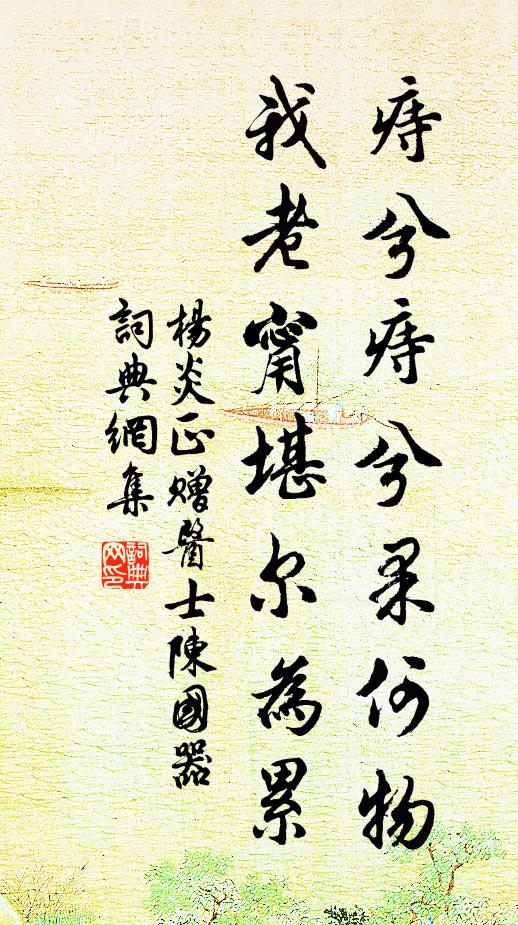 痔兮痔兮果何物
我老甯堪尔為累
楊炎正贈醫士陳國器
詞典網集
詞典
网印